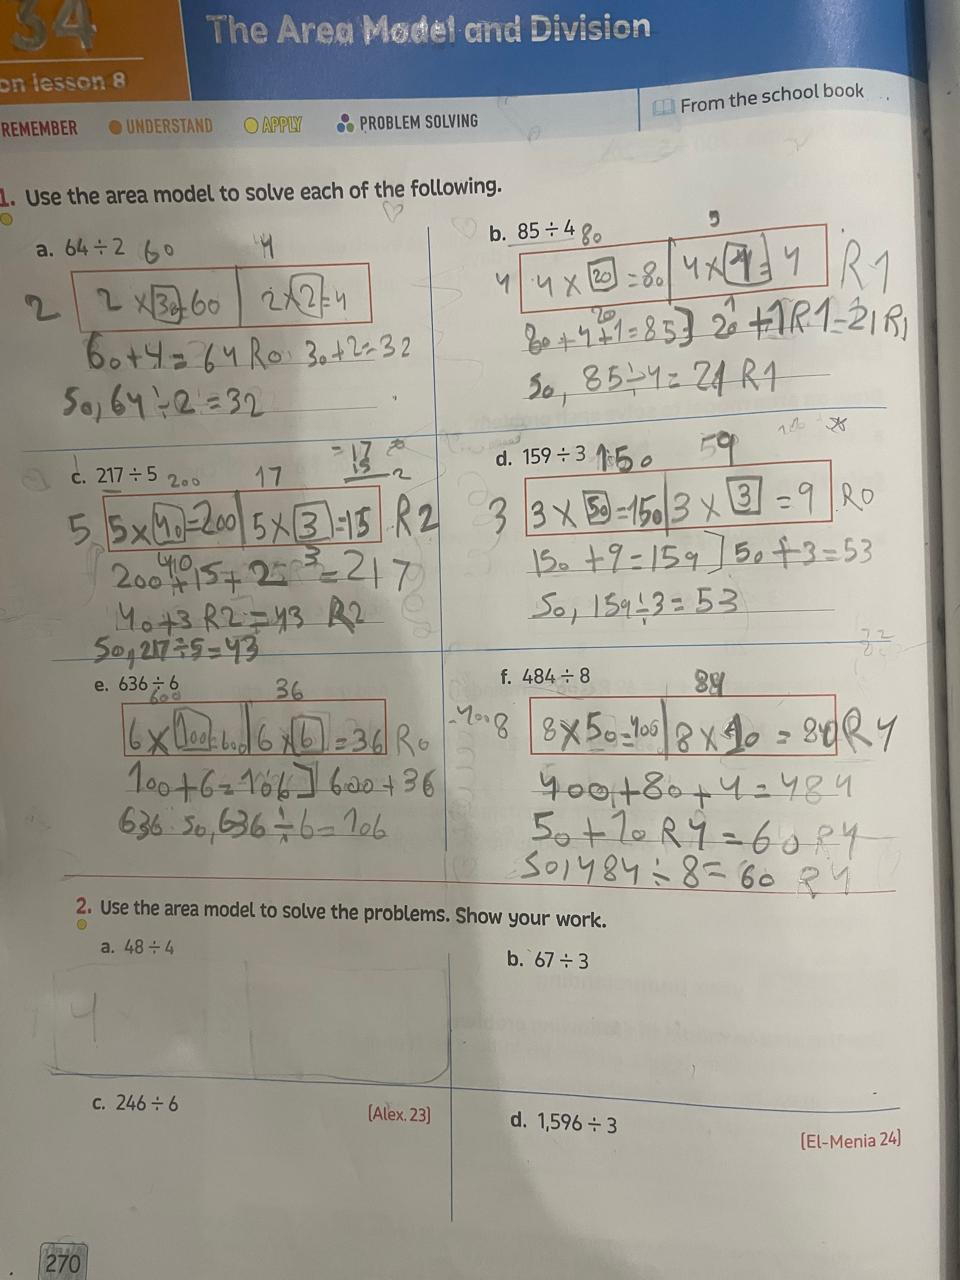 34
The Area Model and Division
on lesson 8
REMEMBER UNDERSTAND APPLY PROBLEM SOLVING
From the school book
1. Use the area model to solve each of the following.
a. 64 ÷ 2 60 4
2 2 × 30=60 2×2=4
60+4= 64 R0 30+2=32
So, 64 ÷ 2 = 32
b. 85 ÷ 4 80
4 4 × 20 =80 4× = 4 R1
80+4+1=85] 20 +1R1=21R1
So, 85÷4= 21 R1
c. 217 ÷ 5 200 17
=17
15
2
5 5×40=200 5×3=15 R2
200+15+2=217
40 3
40+3 R2=43 R2
So, 217÷5=43
d. 159 ÷ 3 150 59
3 3× 50=150 3 × 3 = 9 R0
150 +9=159] 50+3=53
So, 159÷3= 53
e. 636 ÷ 6
600 36
6×100=600 6×6=36 R0
100+6=106] 600+36
636 So, 636÷6=106
f. 484 ÷ 8 84
8 8×50=400 8 × 10 = 80 R4
400+80+4=484
50+10 R4=60 R4
So, 484÷8= 60 R4
2. Use the area model to solve the problems. Show your work.
a. 48 ÷ 4
4
b. 67 ÷ 3
c. 246 ÷ 6
[Alex. 23]
d. 1,596 ÷ 3
[El-Menia 24]
270